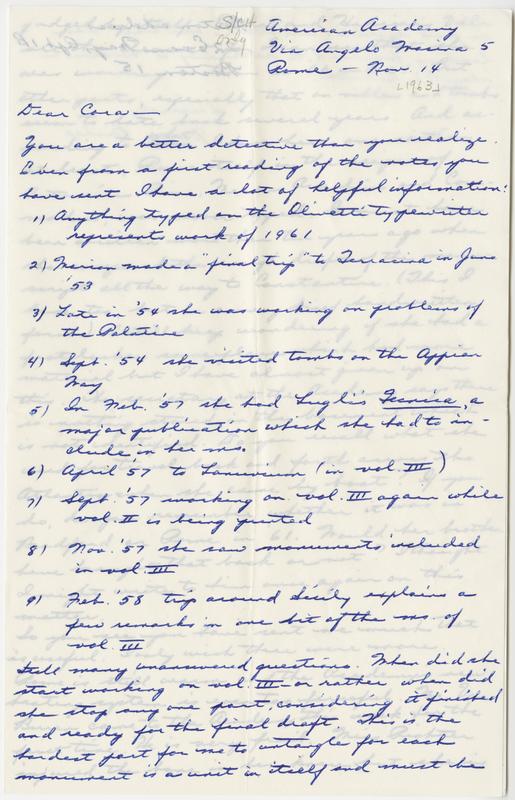 American Academy
Via Angelo Masina 5
Rome — Nov. 14
[1963]
Dear Cora—
You are a better detective than you realize.
Even from a first reading of the notes you
have sent I have a lot of helpful information:
1) Anything typed on the Olivetti typewriter
represents work of 1961
2) Marion made a "final trip" to Terracina in June
'53
3) Late in '54 she was working on problems of
the Palatine
4) Sept. '54 she visited tombs on the Appian
Way
5) In Feb. '57 she had Lugli's Tecnica, a
major publication which she had to in-
clude in her ms.
6) April '57 to Lanuvium (in vol. III)
7) Sept. '57 working on vol. III again while
vol. II is being printed
8) Nov. '57 she saw monuments included
in vol. III
9) Feb. '58 trip around Sicily explains a
few remarks in one bit of the ms. of
vol. III
Still many unanswered questions. When did she
start working on vol. III — or rather when did
she stop any one part, considering it finished
and ready for the final draft. This is the
hardest part for me to untangle for each
monument is a unit in itself and must be